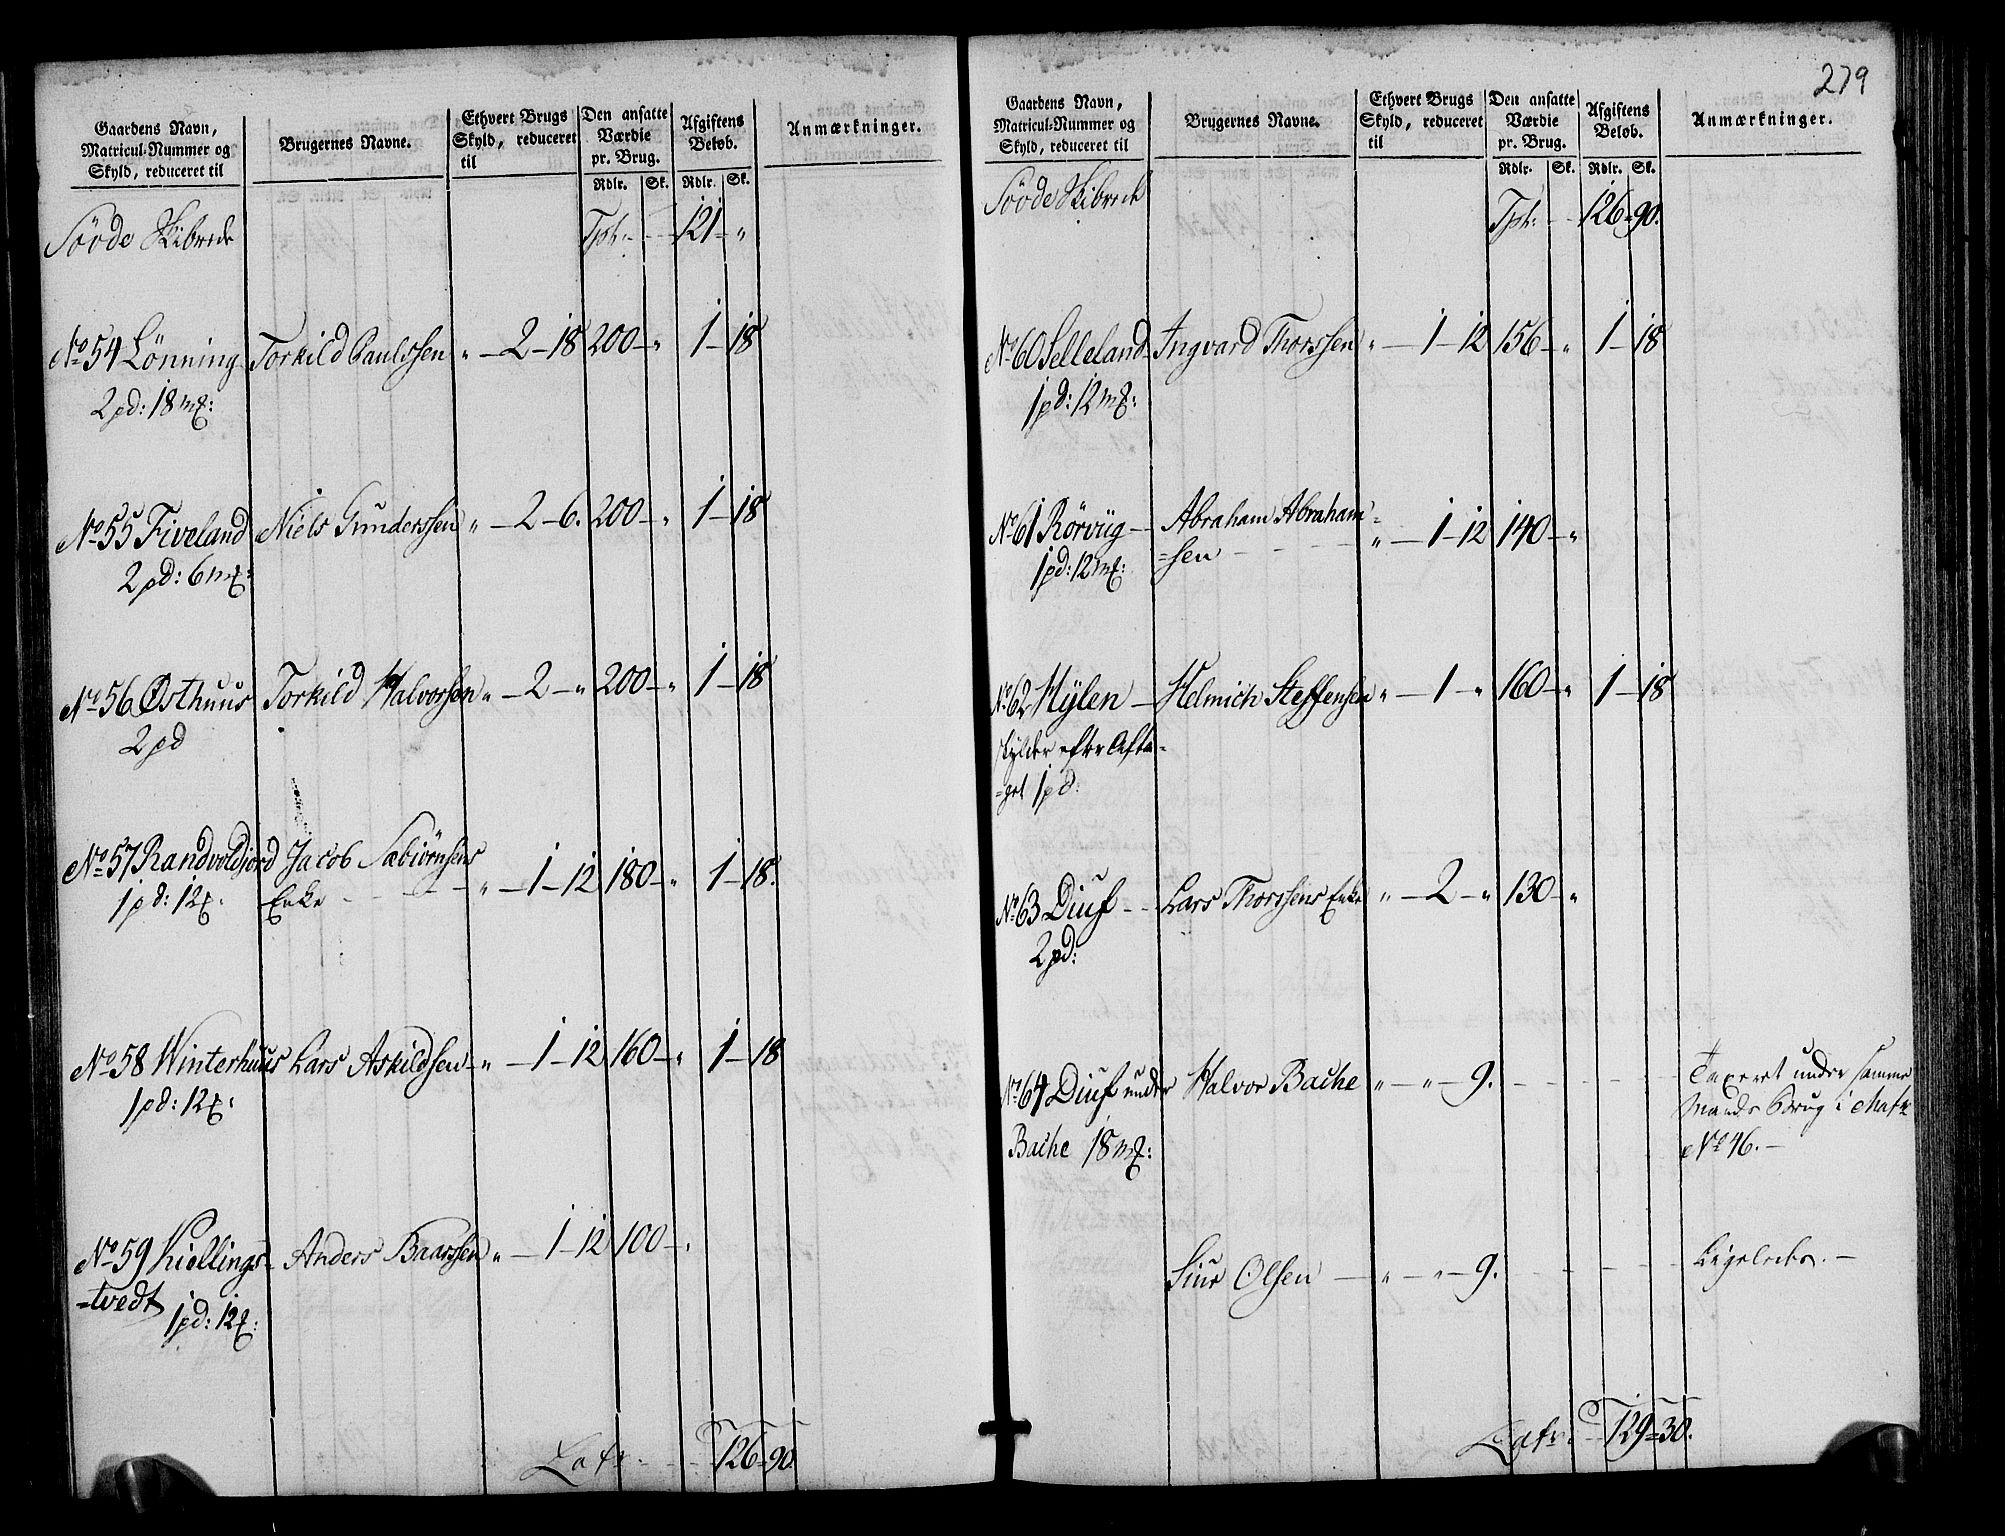 Gaardens Navn,
Matricul-Nummer og
Skyld, reduceret til
Brugernes Navne.
Ethvert Brugs
Skyld, reduceret
til
Den ansatte
Værdie
pr. Brug.
Rdlr. Sk.
Afgiftens
Beløb.
Rdlr. Sk.
Anmærkninger.
Sövde Skibrede Tpt: 121 - "
No 54 Lönning Torkild Paulssen " - 2 - 18 200 - " 1 - 18
2 pd: 18 mk:
No 55 Fiveland Niels Gunderssen " - 2 - 6. 200 - " 1 - 18
2 pd: 6 mk:
No 56 Østhuus Torkild Halvorssen " - 2 - " 200 - " 1 - 18
2 pd
No 57 Randvoldjord Jacob Sæbiörnsens
1 pd: 12 mk: Enke - - - " - 1 - 12 180 - " 1 - 18.
No 58 Winterhuus Lars Askildsen - " - 1 - 12 160 - " 1 - 18
1 pd: 12 mk:
No 59 Kiellings- Anders Baarssen " - 1 - 12 100 - "
=tvedt
1 pd: 12 mk:
Latr. - - 126 - 90.
279
Gaardens Navn,
Matricul-Nummer og
Skyld, reduceret til
Brugernes Navne.
Ethvert Brugs
Skyld, reduceret
til
Den ansatte
Værdie
pr. Brug.
Rdlr. Sk.
Afgiftens
Beløb.
Rdlr. Sk.
Anmærkninger.
Sövde Skibrede Tpt: - - 126 - 90.
No 60 Selleland Ingvard Thorssen " - 1 - 12 156 - " 1 - 18
1 pd: 12 mk:
No 61 Rörviig - Abraham Abraham=
=sen - - - " - 1 - 12 140 - "
1 pd: 12 mk:
No 62 Hylen - Helmich Steffensen " - 1 - " 160 - " 1 - 18
skylder efter Afta=
=get 1 pd.
No 63 Diuf - - Lars Thorssens Enke " - 2 - " 130 - "
2 pd:
No 64 Diuf under Halvor Bache " - " - 9. - - - - Taxeret under samme
Bache 18 mk: Mands Brug i Matr
No 46. -
Siur Olsen - " - " - 9. - - - - Ligeledes. -
Latr. - - 129 = 30.